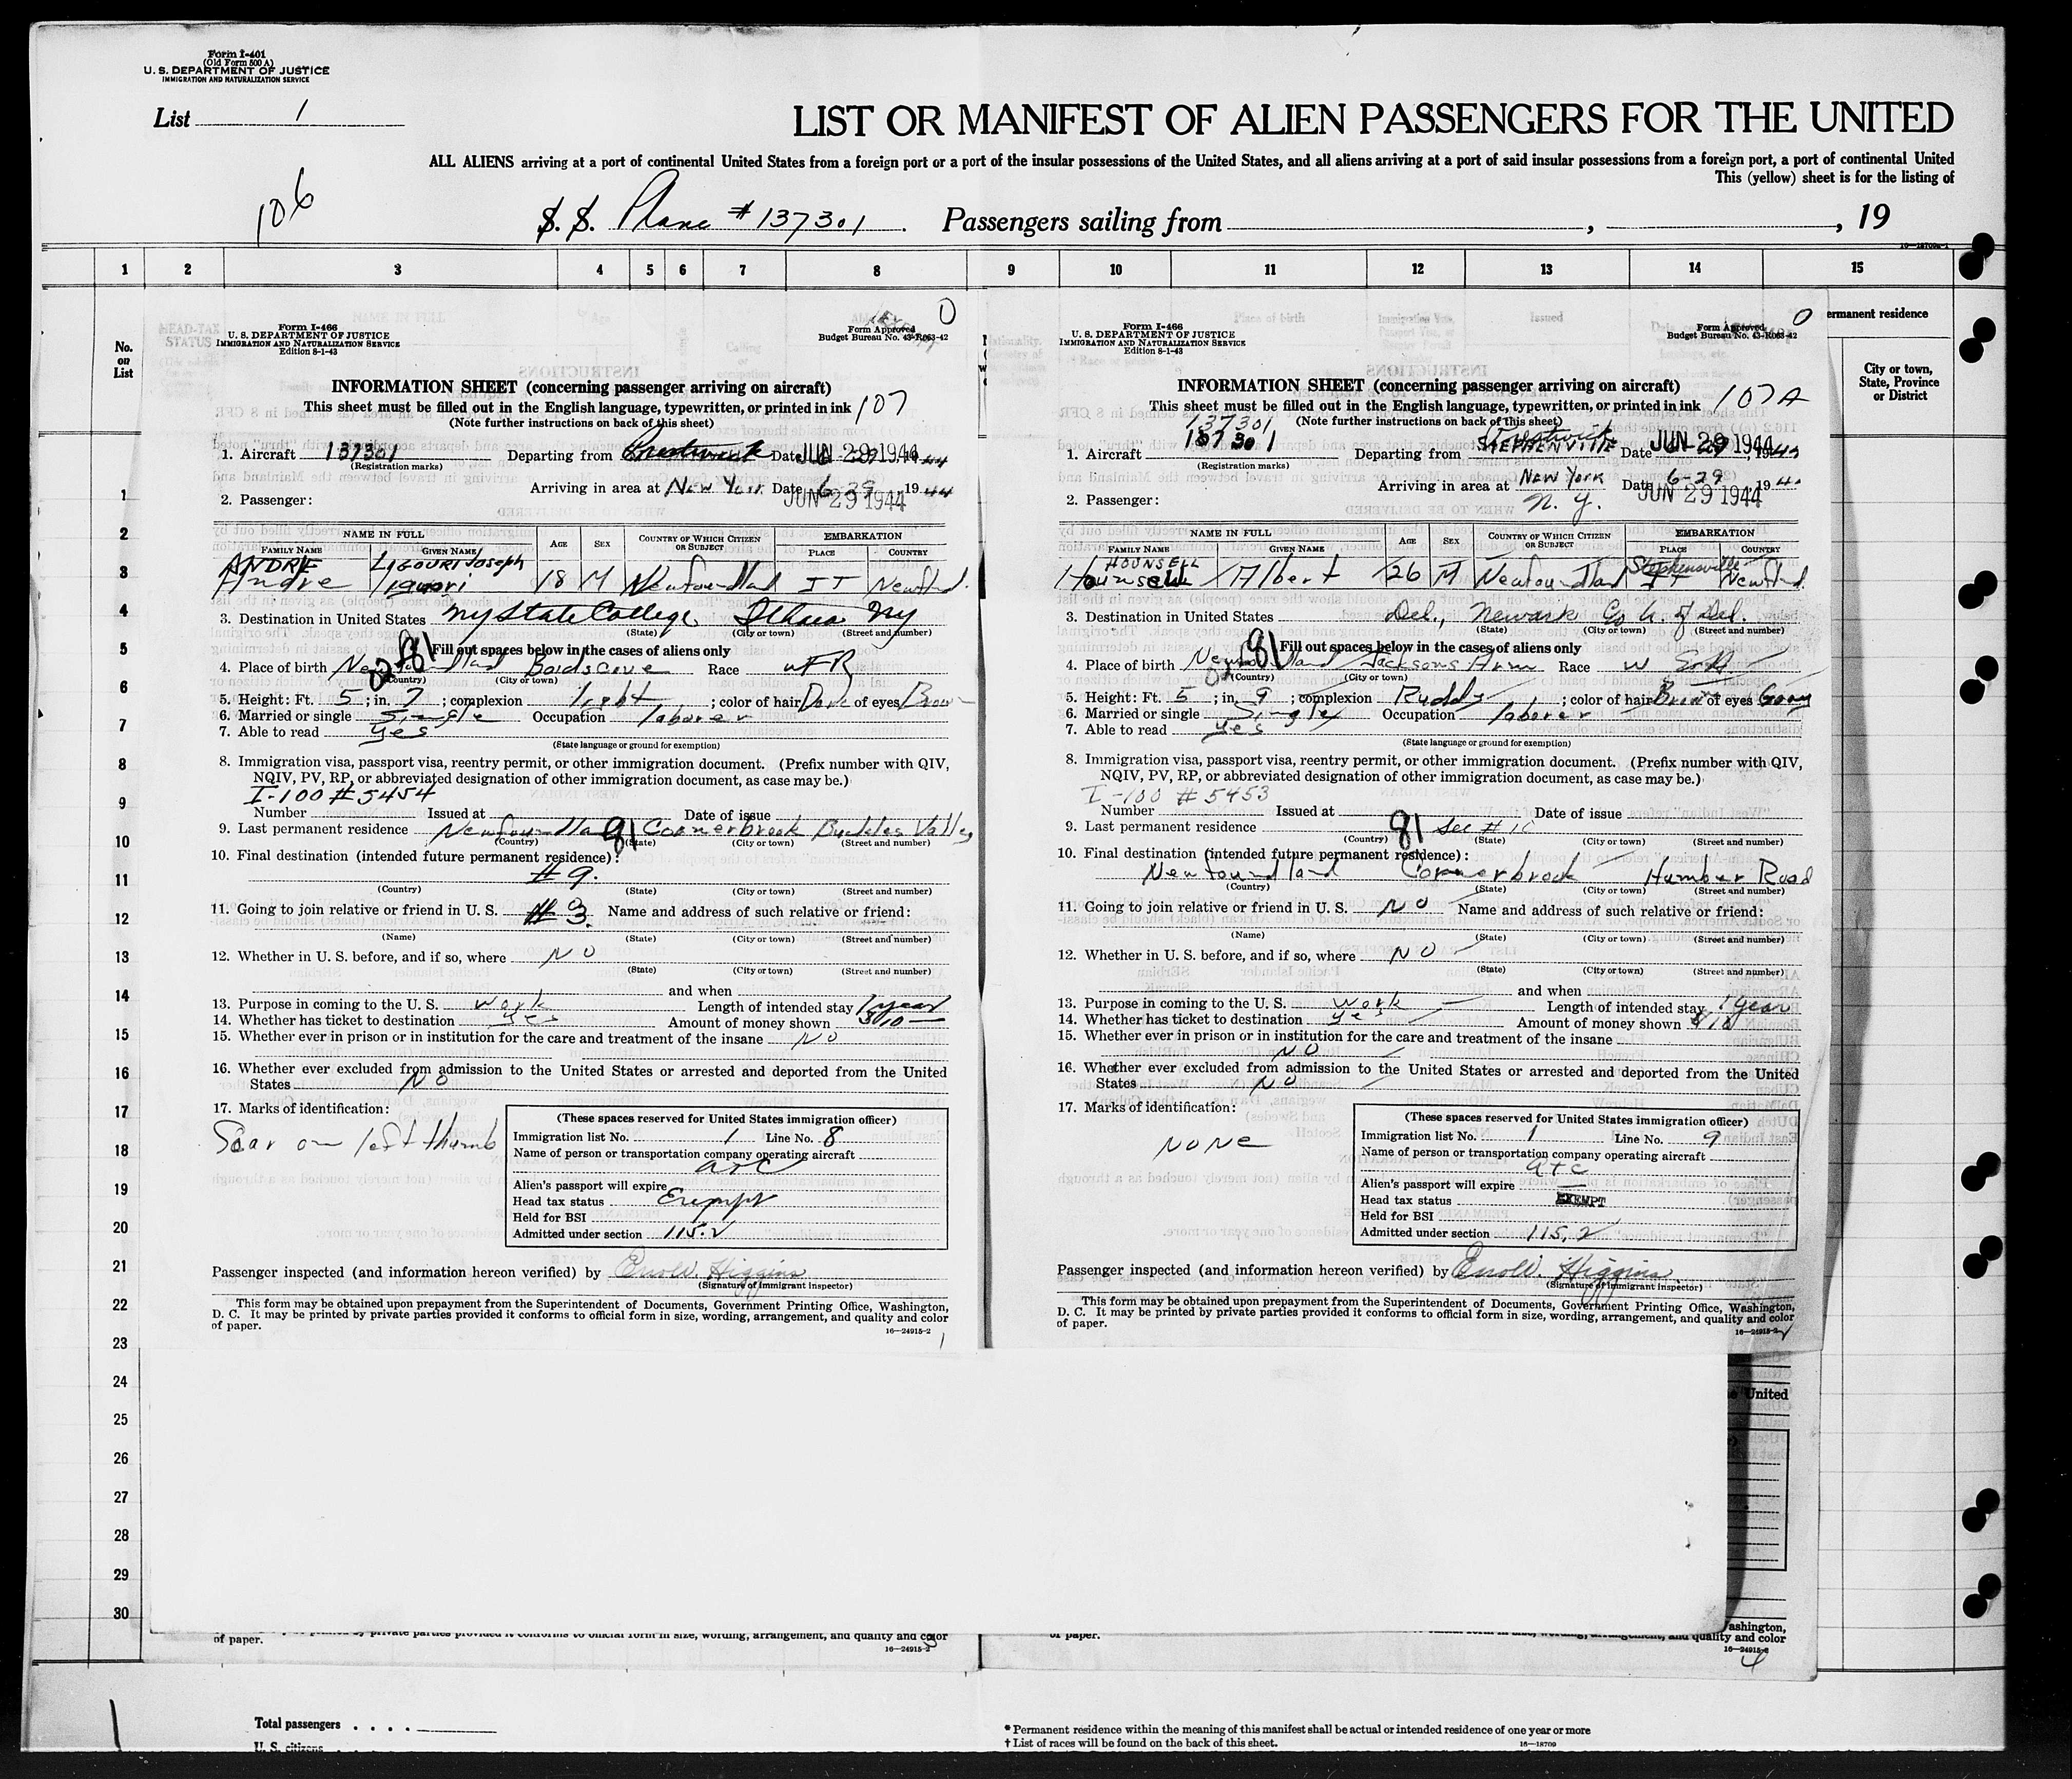 Form I-401
(Old Form 500 A)
U. S. DEPARTMENT OF JUSTICE
IMMIGRATION AND NATURALIZATION SERVICE
List 1
LIST OR MANIFEST OF ALIEN PASSENGERS FOR THE UNITED
ALL ALIENS arriving at a port of continental United States from a foreign port or a port of the insular possessions of the United States, and all aliens arriving at a port of said insular possessions from a foreign port, a port of continental United
This (yellow) sheet is for the listing of
106
S.S. Plane #137301. Passengers sailing from , , 19
1 2 3 4 5 6 7 8 9 10 11 12 13 14 15
No. on List
ermanent residence
City or town, State, Province or District
1
2
3
4
5
6
7
8
9
10
11
12
13
14
15
16
17
18
19
20
21
22
23
24
25
26
27
28
29
30
0
Form I-466
U. S. DEPARTMENT OF JUSTICE
IMMIGRATION AND NATURALIZATION SERVICE
Edition 8-1-43
Form Approved
Budget Bureau No. 43-R063-42
INFORMATION SHEET (concerning passenger arriving on aircraft)
This sheet must be filled out in the English language, typewritten, or printed in ink 107
(Note further instructions on back of this sheet)
1. Aircraft 137301 Departing from Date JUN 29 1944
(Registration marks)
Arriving in area at New York Date 6-29 1944
JUN 29 1944
2. Passenger:
NAME IN FULL AGE SEX COUNTRY OF WHICH CITIZEN OR SUBJECT EMBARKATION
FAMILY NAME GIVEN NAME PLACE COUNTRY
ANDRIE LIGOURI Joseph
Andre Liguori 18 M Newfoundland IT Newfnd.
3. Destination in United States NY State College, Ithaca NY
(State) (City or town) (Street and number)
81 Fill out spaces below in the cases of aliens only
4. Place of birth Newfoundland Boidscove Race w FR
(Country) (City or town)
5. Height: Ft. 5; in. 7; complexion light; color of hair Dark of eyes Brown
6. Married or single Single Occupation laborer
7. Able to read Yes
(State language or ground for exemption)
8. Immigration visa, passport visa, reentry permit, or other immigration document. (Prefix number with QIV,
NQIV, PV, RP, or abbreviated designation of other immigration document, as case may be.)
I-100 #5454
Number Issued at Date of issue
9. Last permanent residence Newfoundland 81 Cornerbrook Buckles Valley
(Country) (State) (City or town) (Street and number)
10. Final destination (intended future permanent residence):
#9.
(Country) (State) (City or town) (Street and number)
11. Going to join relative or friend in U. S. #3. Name and address of such relative or friend:
(Name) (State) (City or town) (Street and number)
12. Whether in U. S. before, and if so, where NO
(State) (City or town) (Street and number)
and when
13. Purpose in coming to the U. S. work Length of intended stay 1 year
14. Whether has ticket to destination yes Amount of money shown $10—
15. Whether ever in prison or in institution for the care and treatment of the insane NO
16. Whether ever excluded from admission to the United States or arrested and deported from the United
States NO
17. Marks of identification:
Scar on left thumb
(These spaces reserved for United States immigration officer)
Immigration list No. 1 Line No. 8
Name of person or transportation company operating aircraft
atc
Alien's passport will expire
Head tax status Exempt
Held for BSI
Admitted under section 115.2
Passenger inspected (and information hereon verified) by Higgins
(Signature of immigrant inspector)
This form may be obtained upon prepayment from the Superintendent of Documents, Government Printing Office, Washington,
D. C. It may be printed by private parties provided it conforms to official form in size, wording, arrangement, and quality and color
of paper.
16—24915-2
1
0
Form I-466
U. S. DEPARTMENT OF JUSTICE
IMMIGRATION AND NATURALIZATION SERVICE
Edition 8-1-43
Form Approved
Budget Bureau No. 43-R063-42
INFORMATION SHEET (concerning passenger arriving on aircraft)
This sheet must be filled out in the English language, typewritten, or printed in ink 107A
(Note further instructions on back of this sheet)
137301
1. Aircraft 137301 Departing from STEPHENVILLE Date JUN 29 1944
(Registration marks)
Arriving in area at New York Date 6-29 194
N.Y. JUN 29 1944
2. Passenger:
NAME IN FULL AGE SEX COUNTRY OF WHICH CITIZEN OR SUBJECT EMBARKATION
FAMILY NAME GIVEN NAME PLACE COUNTRY
HOUNSELL Stephensville
Hounsell Albert 26 M Newfoundland IT Newfnd.
3. Destination in United States Del., Newark Co U. of Del.
(State) (City or town) (Street and number)
81 Fill out spaces below in the cases of aliens only
4. Place of birth Newfoundland Jacksons Arm Race w
(Country) (City or town)
5. Height: Ft. 5; in. 9; complexion Ruddy; color of hair Brown of eyes Gray
6. Married or single Single Occupation laborer
7. Able to read yes
(State language or ground for exemption)
8. Immigration visa, passport visa, reentry permit, or other immigration document. (Prefix number with QIV,
NQIV, PV, RP, or abbreviated designation of other immigration document, as case may be.)
I-100 #5453
Number Issued at Date of issue
9. Last permanent residence 81 See #10
(Country) (State) (City or town) (Street and number)
10. Final destination (intended future permanent residence):
Newfoundland Cornerbrook Humber Road
(Country) (State) (City or town) (Street and number)
11. Going to join relative or friend in U. S. NO Name and address of such relative or friend:
(Name) (State) (City or town) (Street and number)
12. Whether in U. S. before, and if so, where NO
(State) (City or town) (Street and number)
and when
13. Purpose in coming to the U. S. work Length of intended stay 1 year
14. Whether has ticket to destination yes Amount of money shown $10
15. Whether ever in prison or in institution for the care and treatment of the insane
NO
16. Whether ever excluded from admission to the United States or arrested and deported from the United
States NO
17. Marks of identification:
NONE
(These spaces reserved for United States immigration officer)
Immigration list No. 1 Line No. 9
Name of person or transportation company operating aircraft
atc
Alien's passport will expire —
Head tax status EXEMPT
Held for BSI
Admitted under section 115.2
Passenger inspected (and information hereon verified) by Higgins
(Signature of immigrant inspector)
This form may be obtained upon prepayment from the Superintendent of Documents, Government Printing Office, Washington,
D. C. It may be printed by private parties provided it conforms to official form in size, wording, arrangement, and quality and color
of paper.
16—24915-2
United
of paper.
16—24915-2
3
of paper.
ashington,
quality and color
16—24915-2
4
Total passengers . . . .
U. S. citizens
* Permanent residence within the meaning of this manifest shall be actual or intended residence of one year or more
† List of races will be found on the back of this sheet.
16—18709